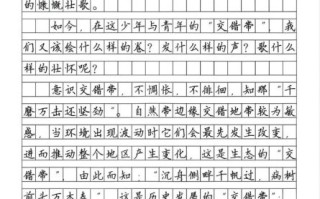 的慷慨壮歌。
如今，在这少年与青年的“交错带”，我
们又该绘什么样的卷？发什么样的声？歌什么
样的壮怀呢？
意识交错带，不惆怅、不徘徊，知那“千
磨万击还坚劲”。自然带边缘交错地带较为敏
感，当环境出现波动时它们会最先发生改变，
进而推动整个地区产生变化，这是生态的“交
错带”，由此而知：“沉舟侧畔千帆过，病树
前头万木春”，这是历史发展的“交错